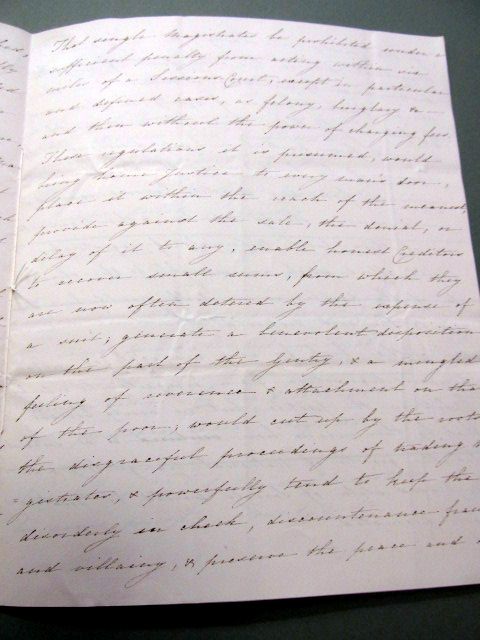 That single Magistrates be prohibited under a
sufficient penalty from acting within six
miles of a Sessions Court, except in particular
and defined cases, as felony, burglary &c —
and then without the power of charging fees.
These regulations it is presumed, would
bring home Justice to every man's door,
place it within the reach of the meanest,
provide against the sale, the denial, or
delay of it to any, enable honest Creditors
to recover small sums, from which they
are now often detered by the expense of
a suit; generate a benevolent disposition
on the part of the Gentry, & a mingled
feeling of reverence & attachment on tha
of the poor; would cut up by the roots
the disgraceful proceedings of trading
=gistrates, & powerfully tend to keep the
disorderly in check, discountenance frau
and villainy, & preserve the peace and